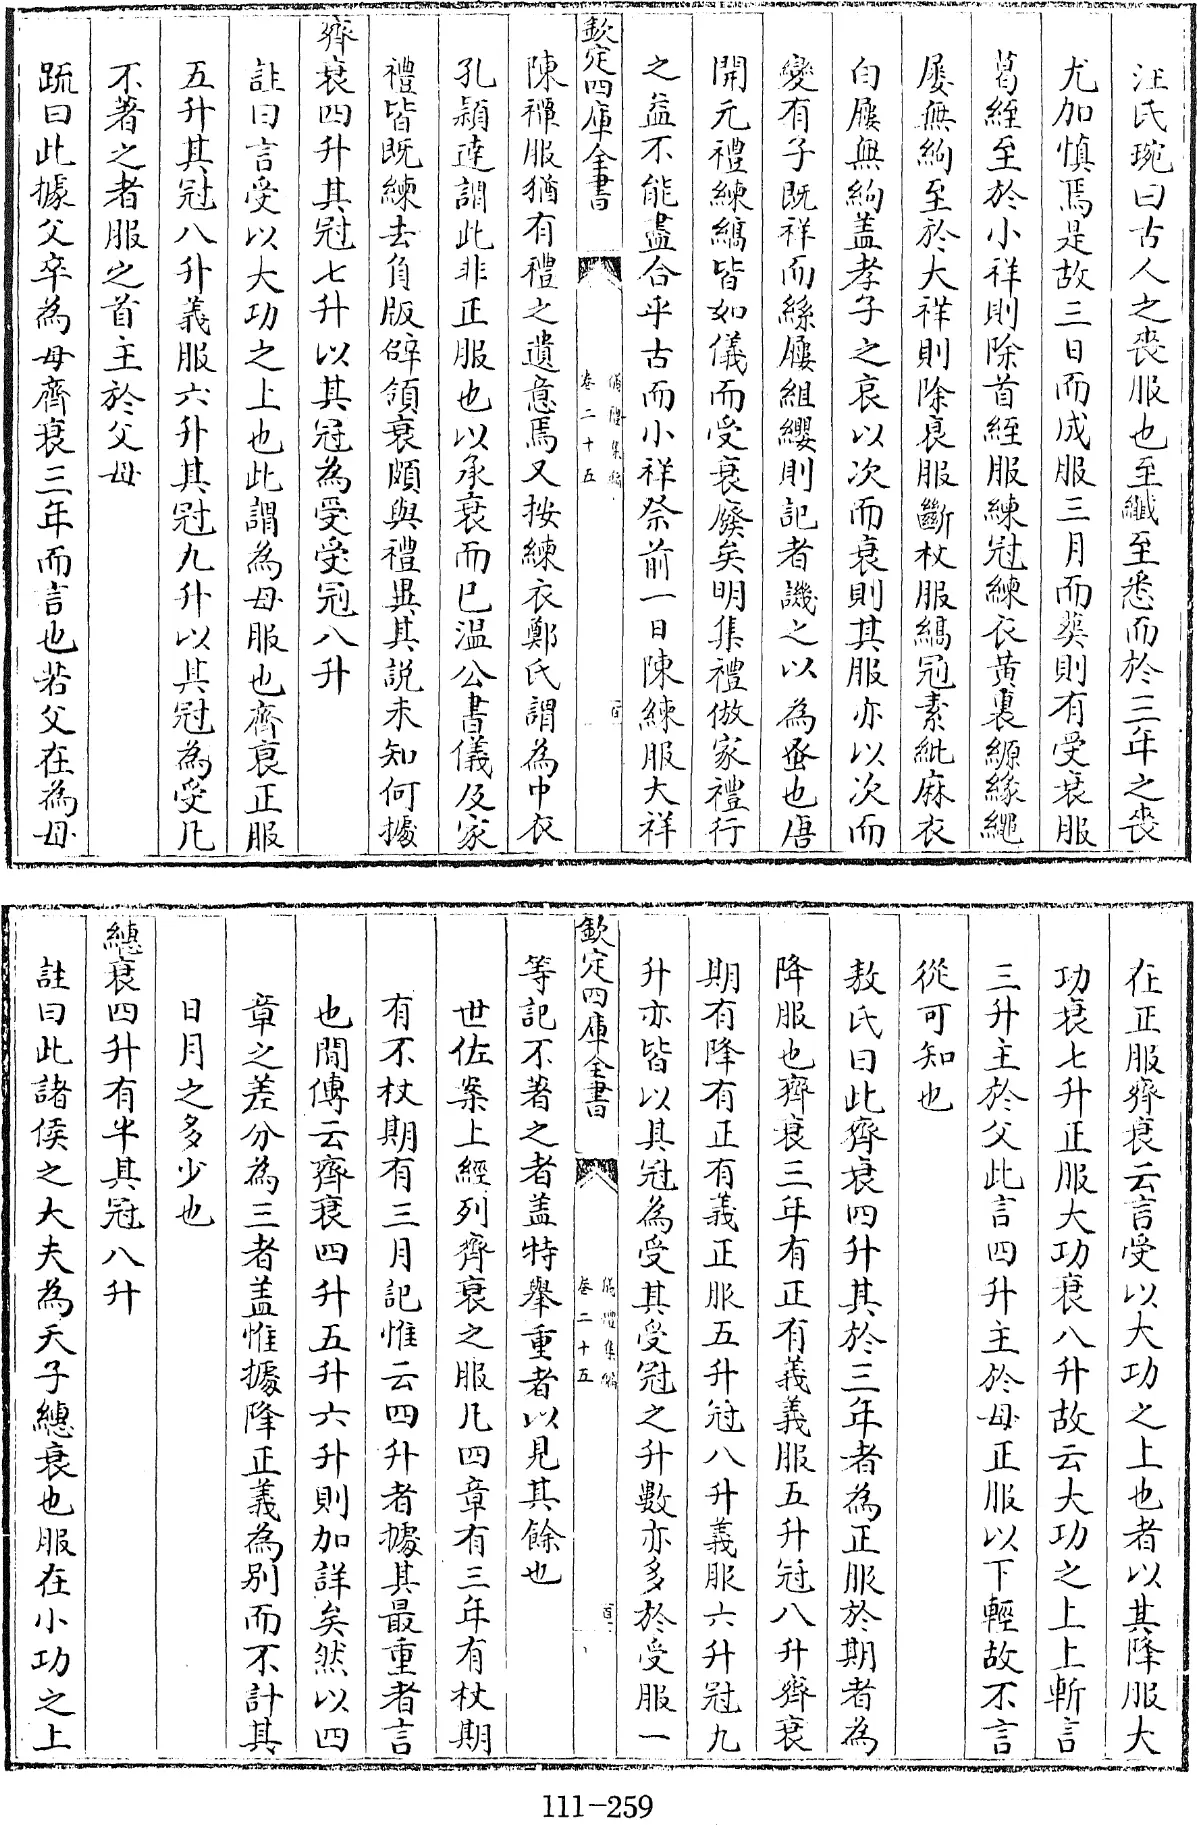 汪氏琬曰古人之喪服也至纖至悉而於三年之喪
尤加慎焉是故三日而成服三月而葬則有受衰服
葛絰至於小祥則除首絰服練冠練衣黃裏縓緣繩
屨無絇至於大祥則除衰服斷杖服縞冠素紕麻衣
白屨無絇蓋孝子之哀以次而衰則其服亦以次而
變有子既祥而絲屨組纓則記者譏之以為蚤也唐
開元禮練縞皆如儀而受衰廢矣明集禮倣家禮行
之益不能盡合乎古而小祥祭前一日陳練服大祥
欽定四庫全書
儀禮集編
卷二十五
陳禫服猶有禮之遺意焉又按練衣鄭氏謂為中衣
孔穎達謂此非正服也以承衰而已温公書儀及家
禮皆既練去負版辟領衰頗與禮異其説未知何據
齊衰四升其冠七升以其冠為受受冠八升
註曰言受以大功之上也此謂為母服也齊衰正服
五升其冠八升義服六升其冠九升以其冠為受凡
不著之者服之首主於父母
疏曰此據父卒為母齊衰三年而言也若父在為母
在正服齊衰云言受以大功之上也者以其降服大
功衰七升正服大功衰八升故云大功之上上斬言
三升主於父此言四升主於母正服以下輕故不言
從可知也
敖氏曰此齊衰四升其於三年者為正服於期者為
降服也齊衰三年有正有義義服五升冠八升齊衰
期有降有正有義正服五升冠八升義服六升冠九
升亦皆以其冠為受其受冠之升數亦多於受服一
欽定四庫全書
儀禮集編
卷二十五
等記不著之者蓋特舉重者以見其餘也
世佐案上經列齊衰之服凡四章有三年有杖期
有不杖期有三月記惟云四升者據其最重者言
也間傳云齊衰四升五升六升則加詳矣然以四
章之差分為三者蓋惟據降正義為別而不計其
日月之多少也
繐衰四升有半其冠八升
註曰此諸侯之大夫為天子繐衰也服在小功之上
111-259